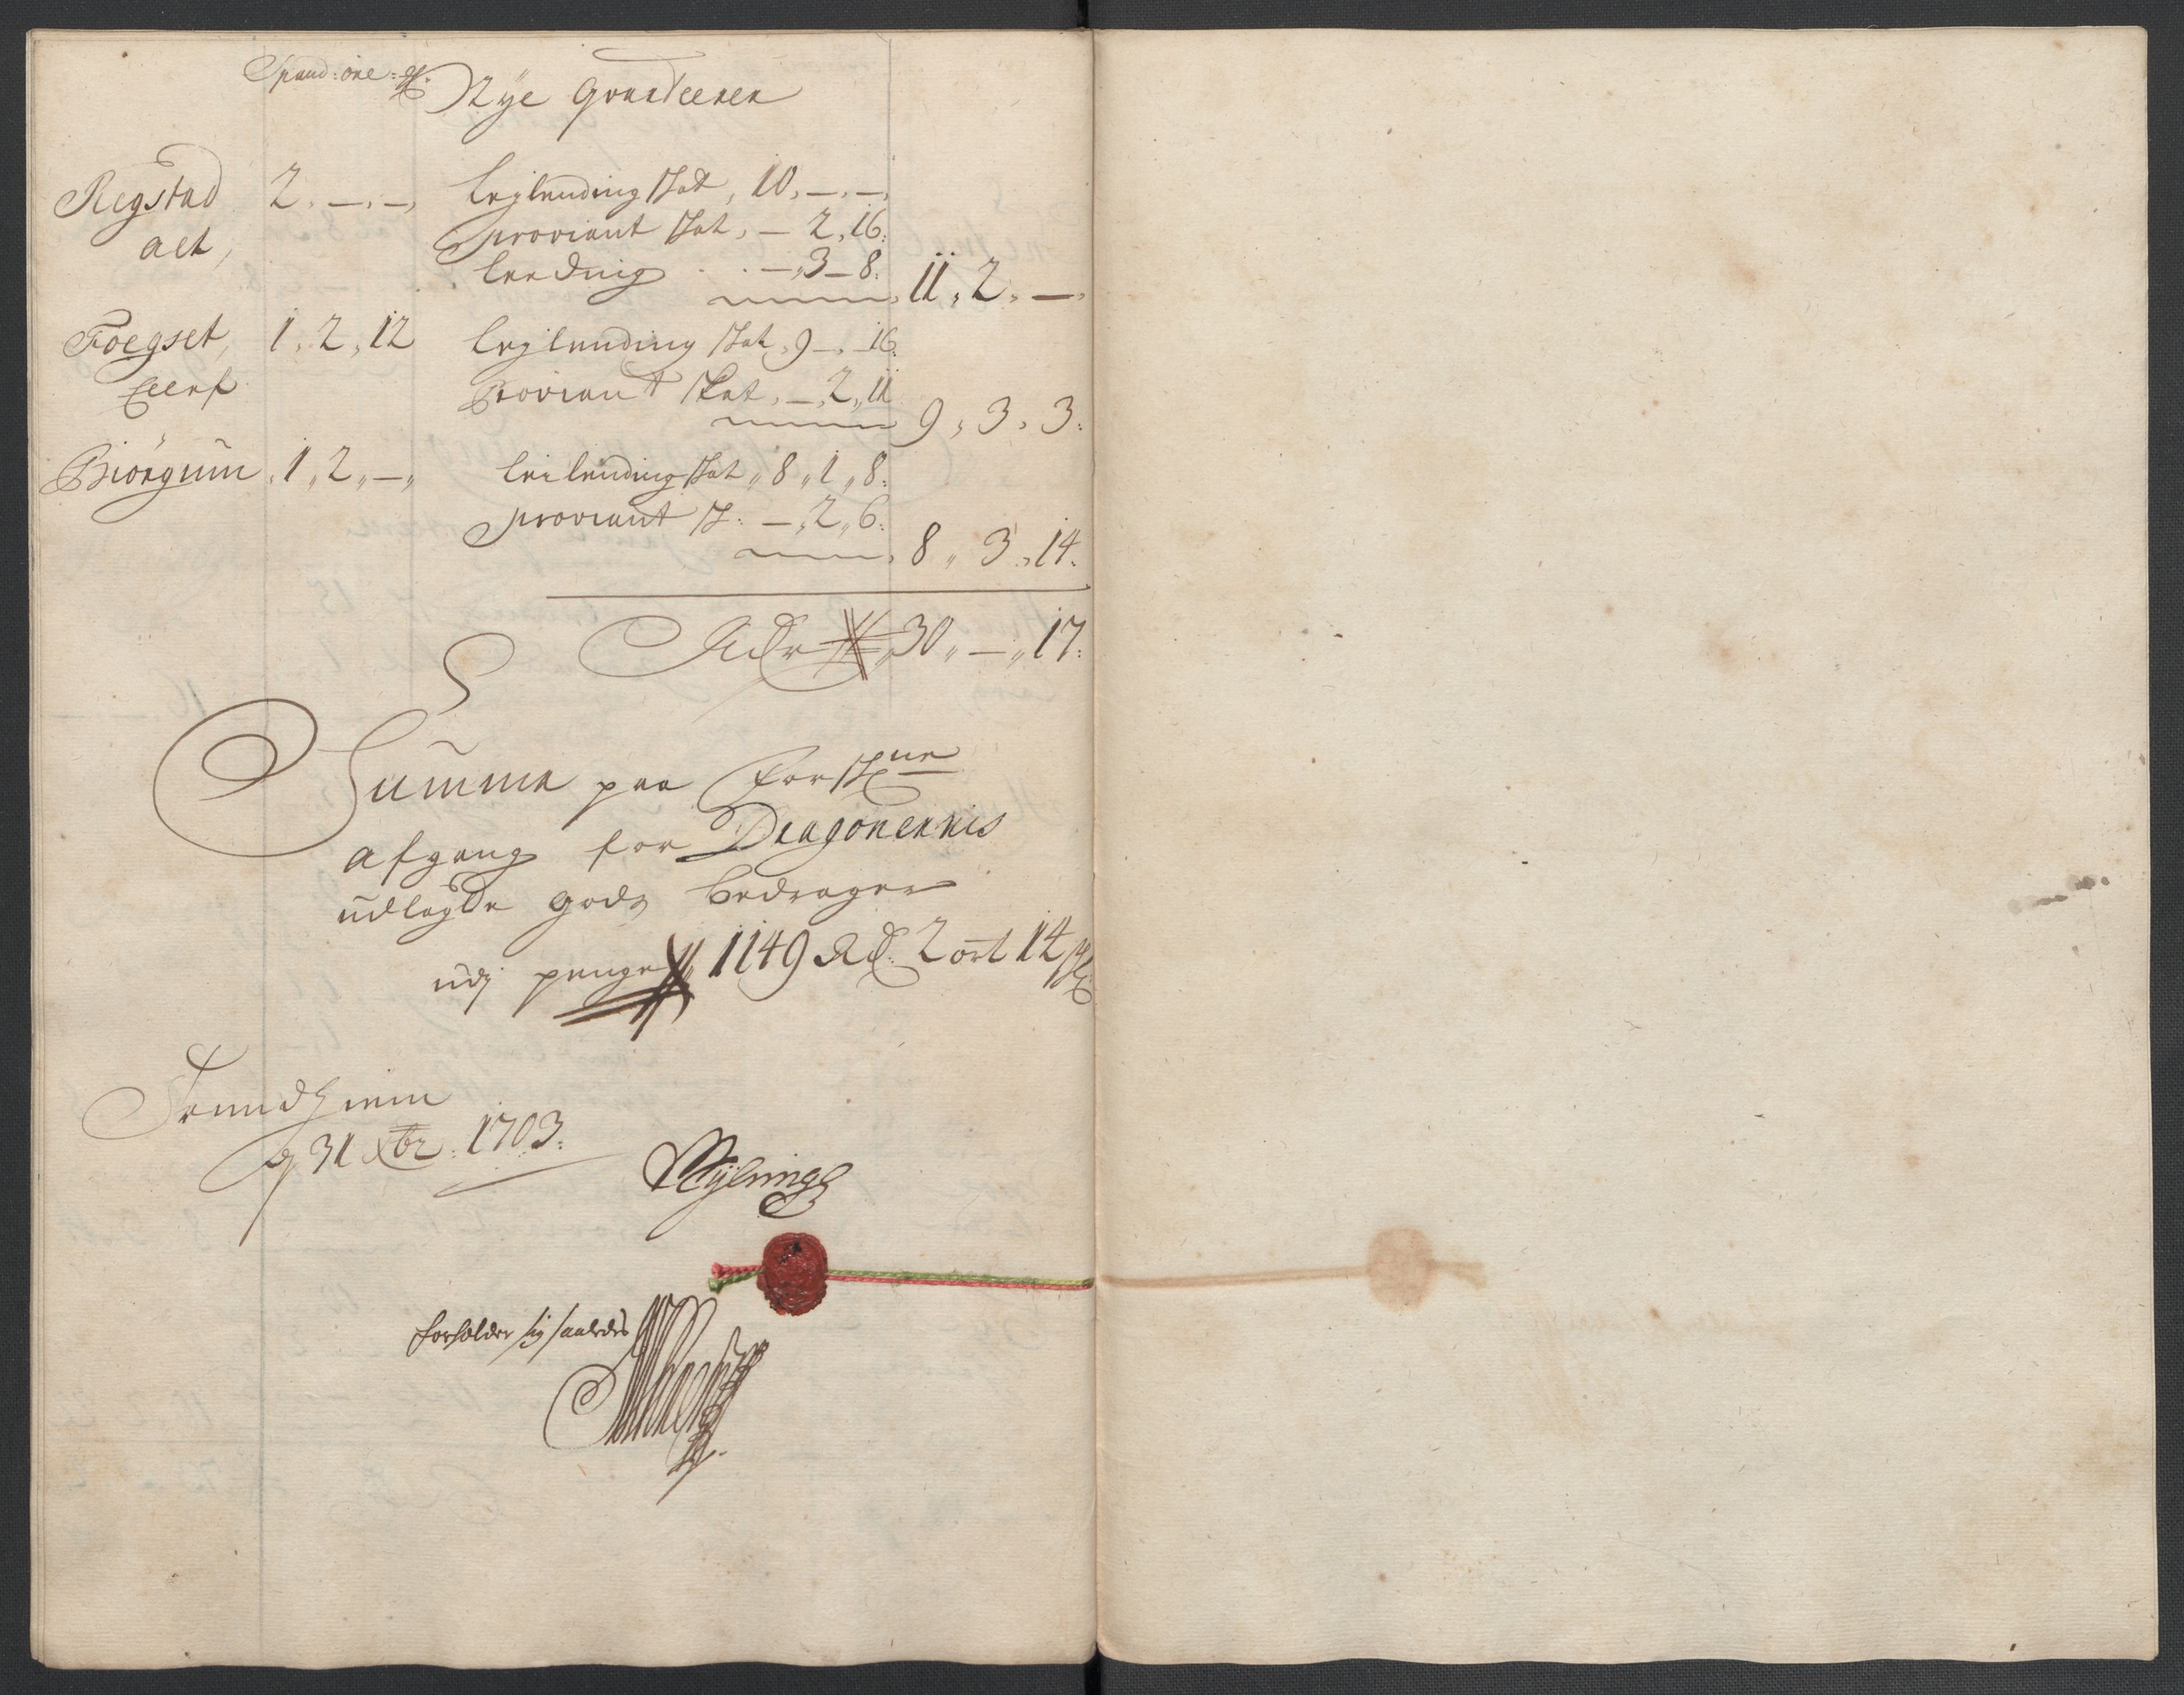 Spand: øre: 
Nye Qvarteerer
Regstad 2. — . —, Leylending skat, 10, —. —,
alt, proviant skat, — 2, 16:
Leeding . . —, 3 — 8: 11, 2, —,
Foegset, 1, 2, 12 Leylending skat, 9 —, 16:
Proviant skat, —, 2, 11
9, 3, 3:
Biørgum, 1, 2, —, Leilending skat, 8, 1, 8:
proviant sk: —, 2, 6:
8, 3, 14:
30, —, 17:
Summa paa forskne
afgang for Dragonernis
udlagde godz bedrager
udj penge 1149 Rd: 2 ort 14 sk
Trundhiem
d 31 Xbr: 1703:
forholder sig saaledes